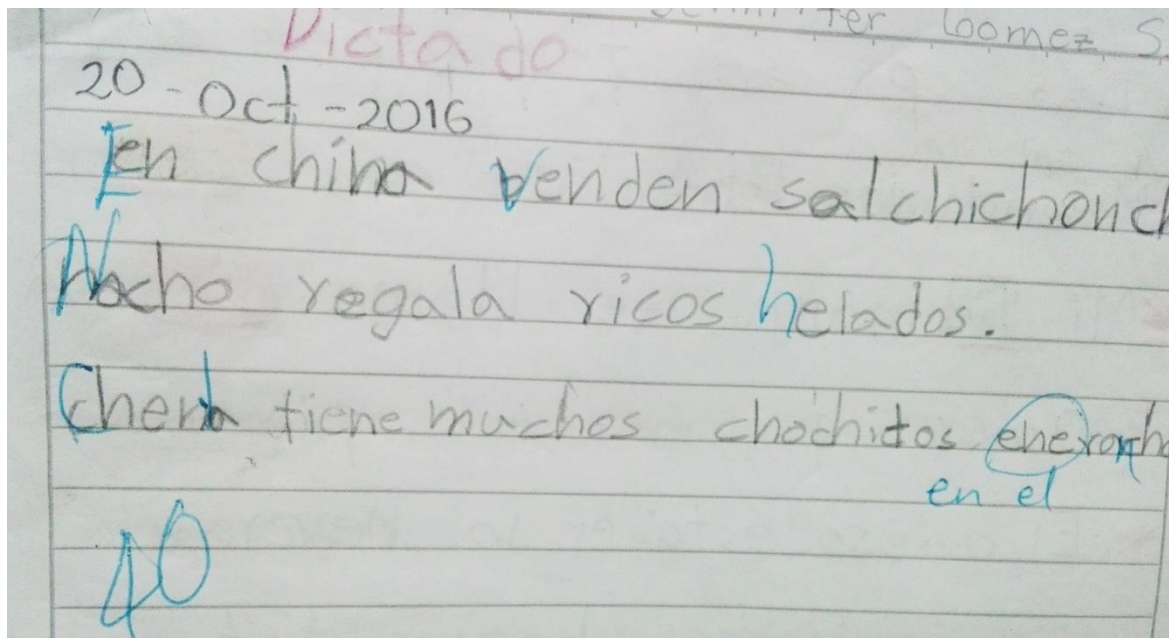 Gomez S.
Dictado
20-Oct-2016
En china Venden salchichonc
Nacho regala ricos helados.
tiene muchos chochitos
en el
10